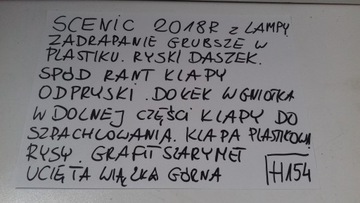 SCENIC 2018R Z LAMPY
ZADRAPANIE GRUBSZE W
PLASTIKU. RYSKI DASZEK.
SPÓD RANT KLAPY
ODPRYSKI. DOŁEK WGNIOTKA
W DOLNEJ CZĘŚCI KLAPY DO
SZPACHLOWANIA. KLAPA PLASTIKOWA
RYSY. GRAFIT SZARY MET
UCIĘTA WIĄZKA GÓRNA H154